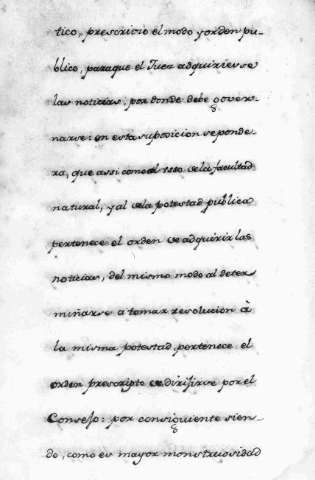 tico, prescrivio el modo y orden pu-
blico, paraque el Juez adquiriesse
las noticias, por donde debe gover-
narse: en esta suposicion se ponde-
ra, que assi como al de la facultad
natural, y al de la potestad publica
pertenece el orden de adquirir las
noticias, del mismo modo al deter-
miñarse a tomar resolucion à
la misma potestad, pertenece el
orden prescripto de dirijirse por el
Consejo: por consiguiente sien-
do, como es mayor monstruosidad